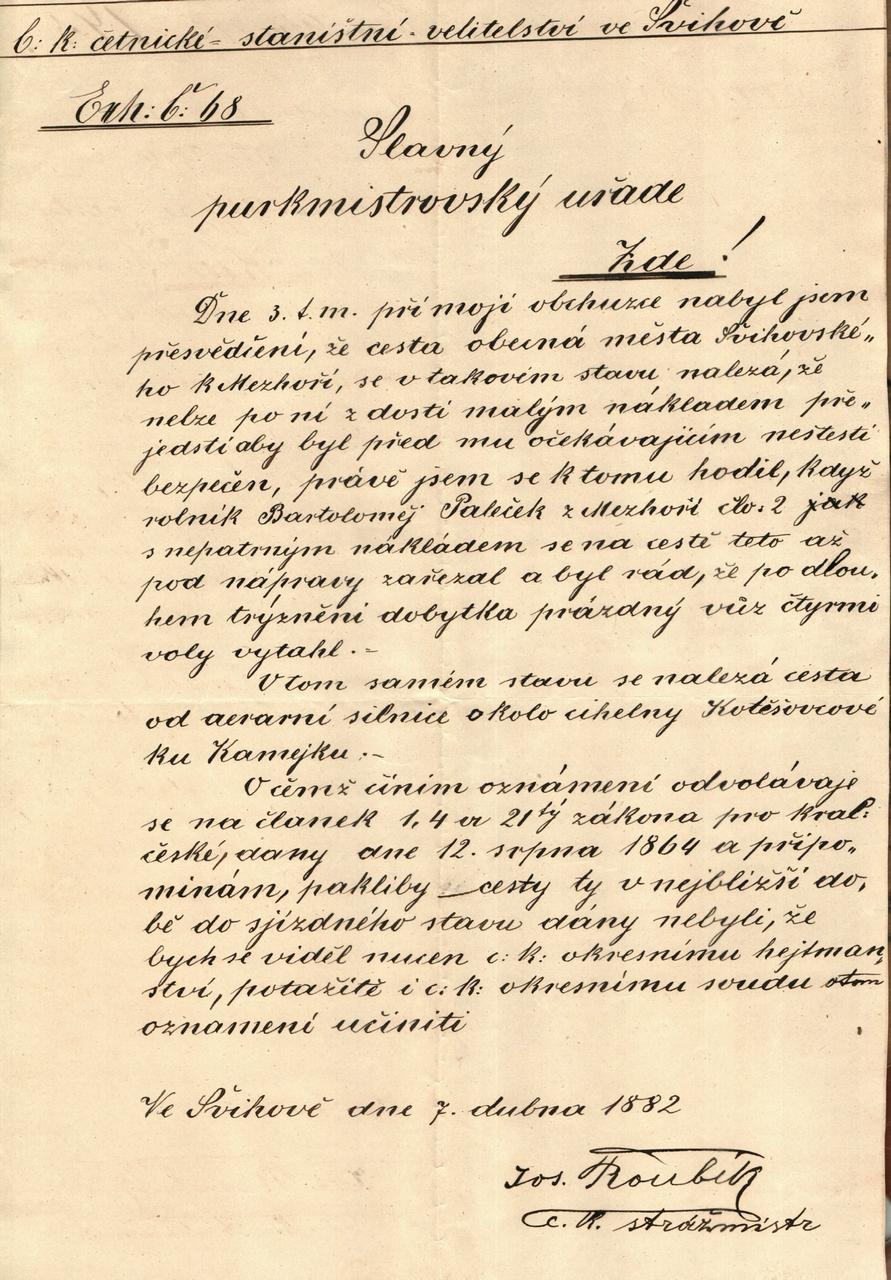 C: k: četnické- staništní- velitelství ve Švihově
Exh: č: 68
Slavný
purkmistrovský uřade
Zde!
Dne 3. t. m. při moji obchuzce nabyl jsem
přesvědčení, že cesta obecná města Švihovské„
ho k Mezhoří, se v takovém stavu nalezá, že
nelze po ní z dosti malým nákladem pře„
jedsti aby byl před mu očekávajícím neštestí
bezpečen, právě jsem se k tomu hodil, když
rolník Bartoloměj Paleček z Mezhoří čla. 2 jak
s nepatrným nákladem se na cestě teto až
pod nápravy zařezal a byl rád, že po dlou„
hem trýznění dobytka prázdný vůz čtyrmi
voly vytahl.-
V tom samém stavu se nalezá cesta
od aerarní silnice okolo cihelny Kotěšovcové
ku Kamejku.-
O čemž činím oznámení odvolávaje
se na članek 1, 4 a 21tý zákona pro kral:
české, dany dne 12. srpna 1864 a připo„
minám, pakliby cesty ty v nejbližší do„
bě do sjízdného stavu dány nebyli, že
bych se viděl nucen c: k: okresnímu hejtman„
ství, potažitě i c: k: okresnímu soudu otom
oznamení učiniti
Ve Švihově dne 7. dubna 1882
Jos. Roubík
c. k. strážmistr